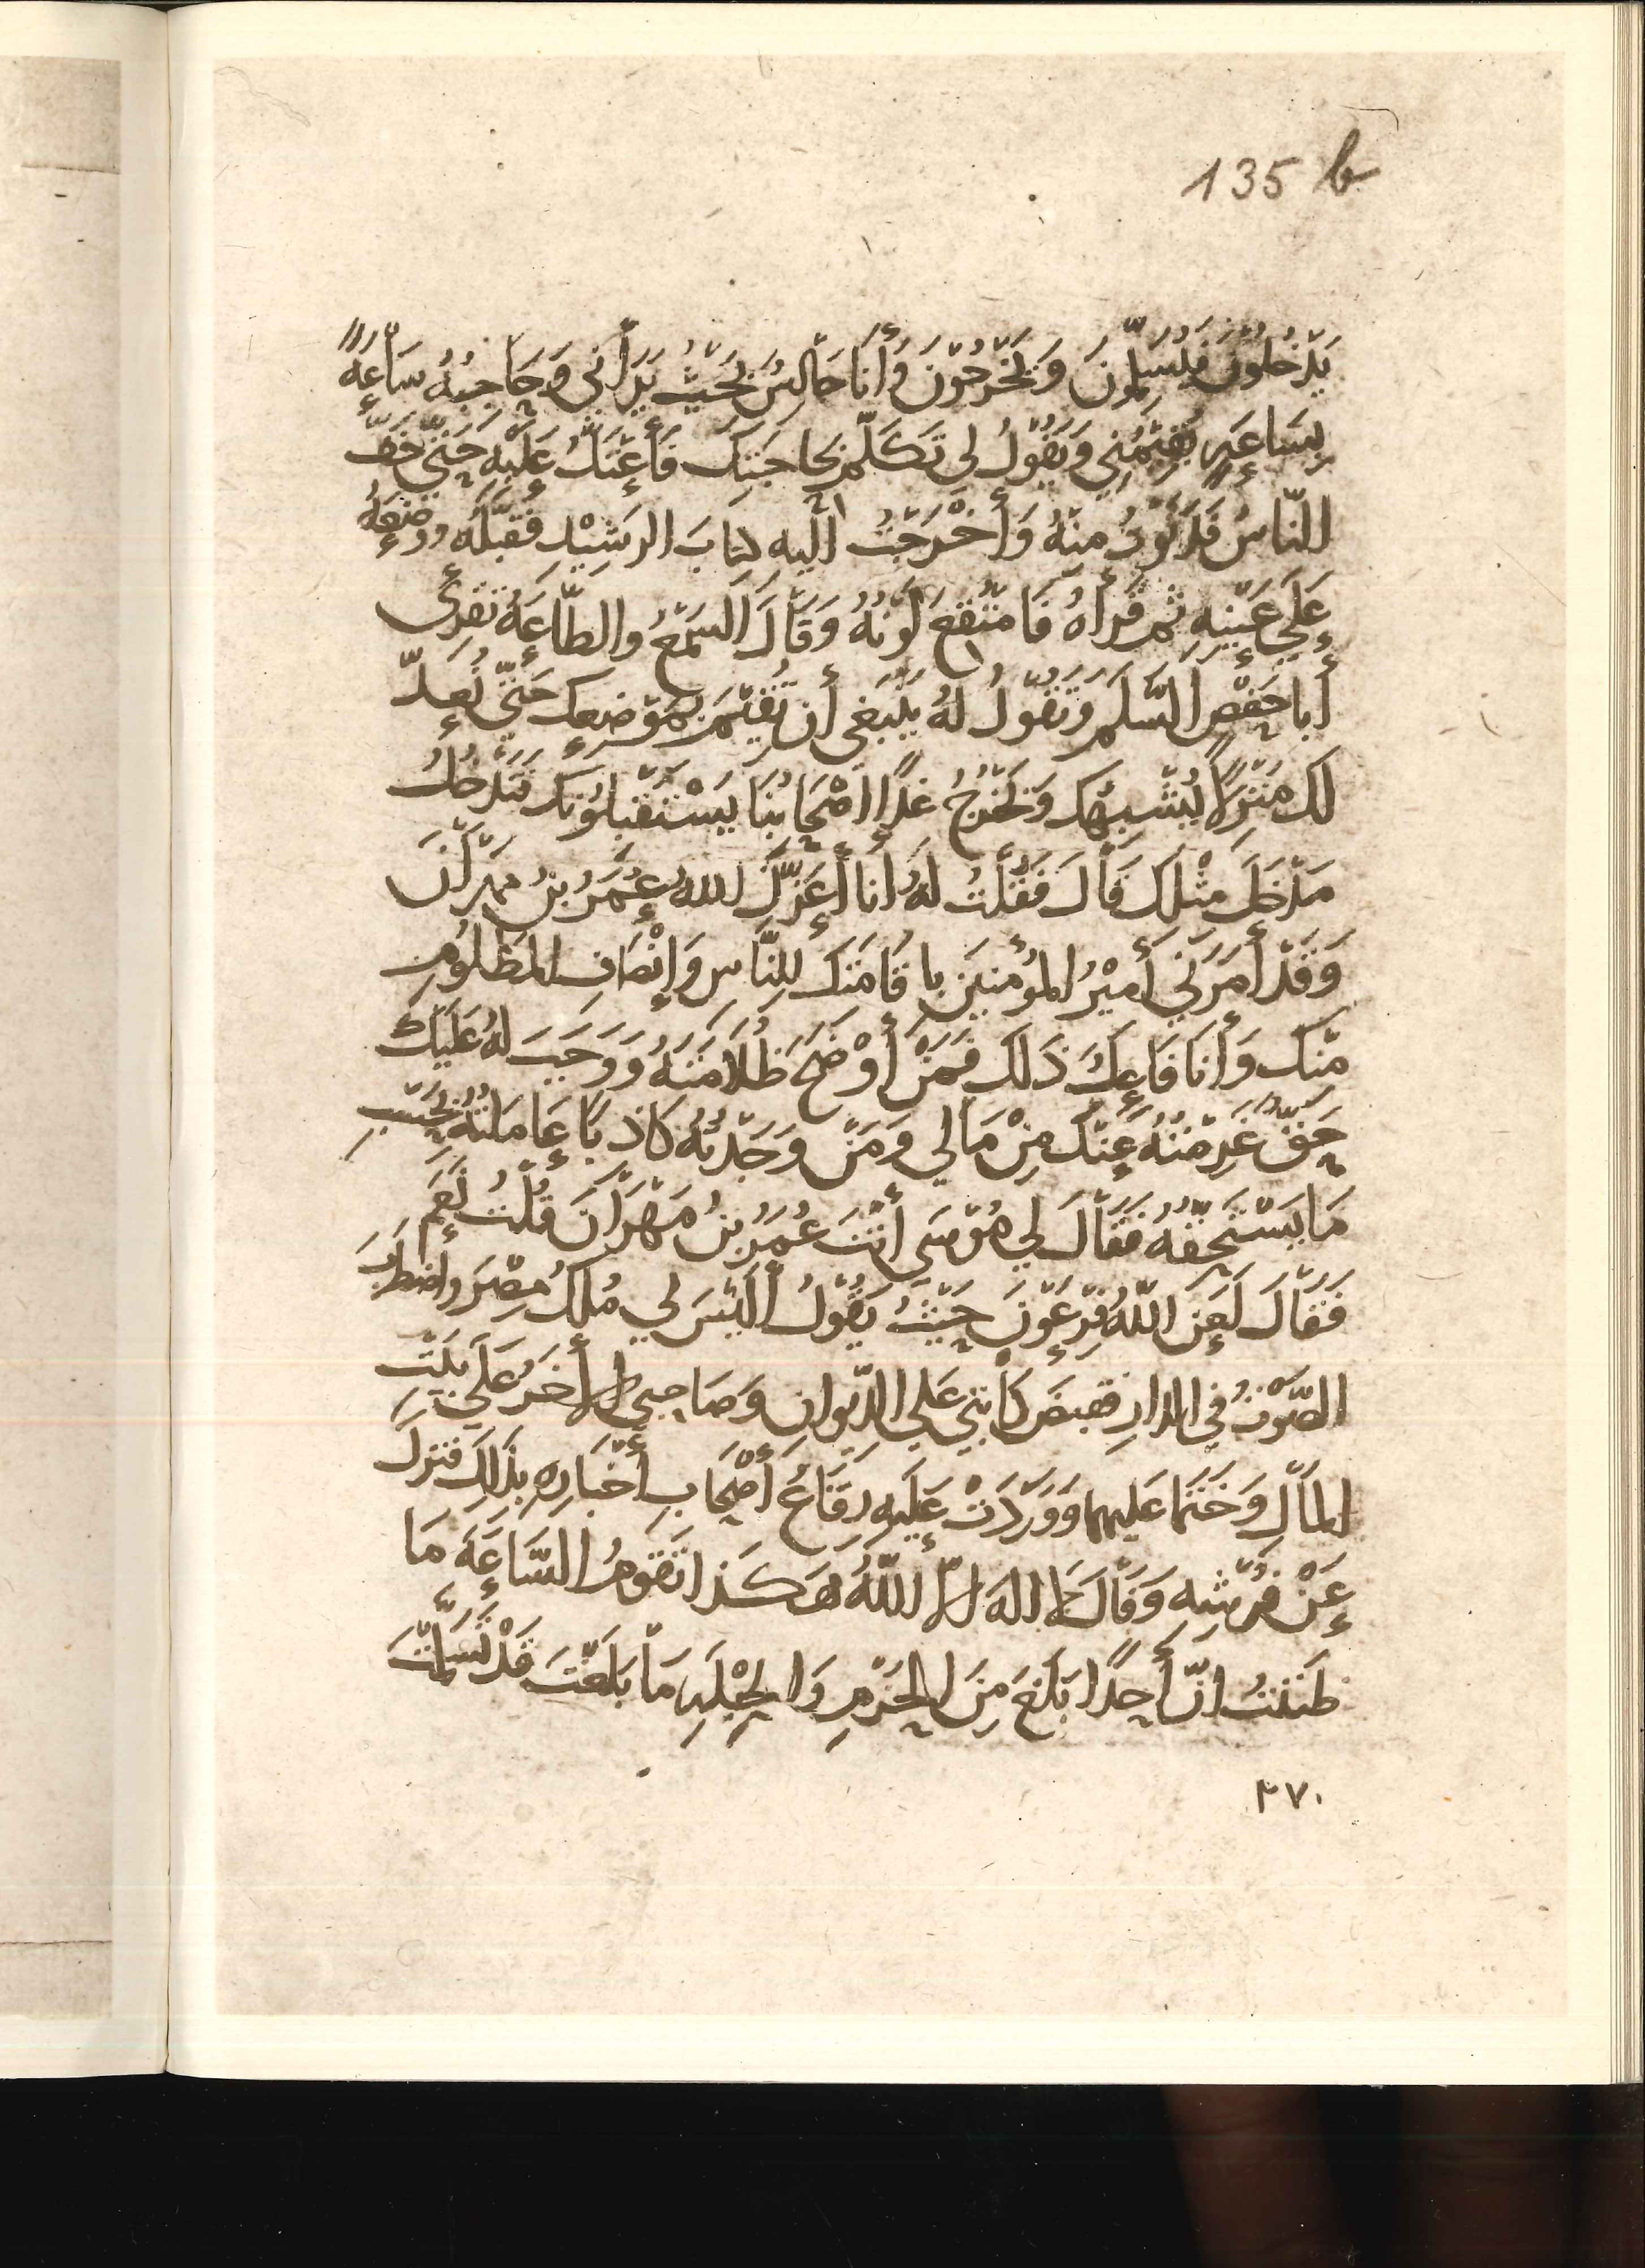 135 b
يَدْخُلُوْنَ فيُسَلِّمُونَ وَيَخْرُجُوْنَ وَأَنَا جَالِسٌ بِحَيْثُ يَرَانِي وَحَاجِبُهُ سَاعةً
بِسَاعَةٍ يُقِيْمُنِي وَيَقُوْلُ لِي تَكَلَّم بحَاجَتِكَ فَأَعْتَلُّ عَلَيْهِ حَتَّي خَفَّ
النّاسُ فَدَنَوْتُ مِنْهُ وَأَخْرَجْتُ اليه كِتابَ الرشِيْدِ فَقَبَّلَهُ وَوَضَعَهُ
عَلَي عَيْنَيْهِ ثم قَرأهُ فَامْتُقِعَ لَوْنُهُ وَقَالَ السّمْعُ والطّاعَةُ تُقرِئُ
أَبا حَفْصٍ السَّلَمَ وَتَقُوْلُ لهُ يَنْبَغي أن تُقِيْمَ بمَوْضِعِك حَتّي نُعِدّ
لك مَنْزِلًا يُشْبِهُك وَيَخْرُجُ غَدًا أصْحَابُنَا يَسْتَقْبِلُوْنَكَ فَتَدْخُلُ
مَدْخَلَ مِثْلِكَ قَالَ فَقُلْتُ لهُ أنا أعَزّكَ اللهُ عُمَرُ بنُ مهْرَانَ
وَقَدْ أمَرَنِي أَمِيْرُ المُؤْمنيْنَ بإقَامَتِكَ لِلنَّاسِ وَإنْصَافِ المَظْلُومِ
مِنْكَ وَأَنَا فَاعِلٌ ذَلكَ فَمَنْ أَوْضَحَ ظُلَامَتَهُ وَوَجَبَ لهُ عَلَيْكَ
حَقٌّ غَرِمْتُهُ عَنْكَ مِنْ مَالي وَمَنْ وَجَدْتُهُ كَاذبًا عَامَلْتُهُ بحَسَبِ
مَا يَسْتَحِقُّهُ فَقَالَ لِي مُوْسَى أنْتَ عُمَرُ بنُ مَهْرَانَ قُلْتُ نَعَمْ
فَقَالَ لَعَنَ اللّهُ فِرْعَوْنَ حَيْثُ يَقُوْلُ أَلَيْسَ لِي مُلْكُ مِصْرَ واضطَرَبَ
الصَّوْتُ في الدارِ فقبَضَ كَاتبي عَلي الدّيوانِ وَصَاحِبي الأخَرُ عَلَي بَيْتِ
المَالِ وَخَتَمَا عَلَيهما وَوَرَدَتْ عَلَيْهِ رِقَاعُ أَصْحَابِ أَخْبَارِهِ بذَلِكَ فنزَلَ
عَنْ فُرُشِهِ وَقَالَ لا اله الّا اللّهُ هَكَذا تَقُومُ السَّاعَةُ مَا
ظَنَنْتُ انّ أَحَدًا بَلَغَ مِنَ الحَزْمِ وَالحِيْلَةِ مَا بَلَغْتَ قَدْ تَسَلَّمْتَ
٢٧٠